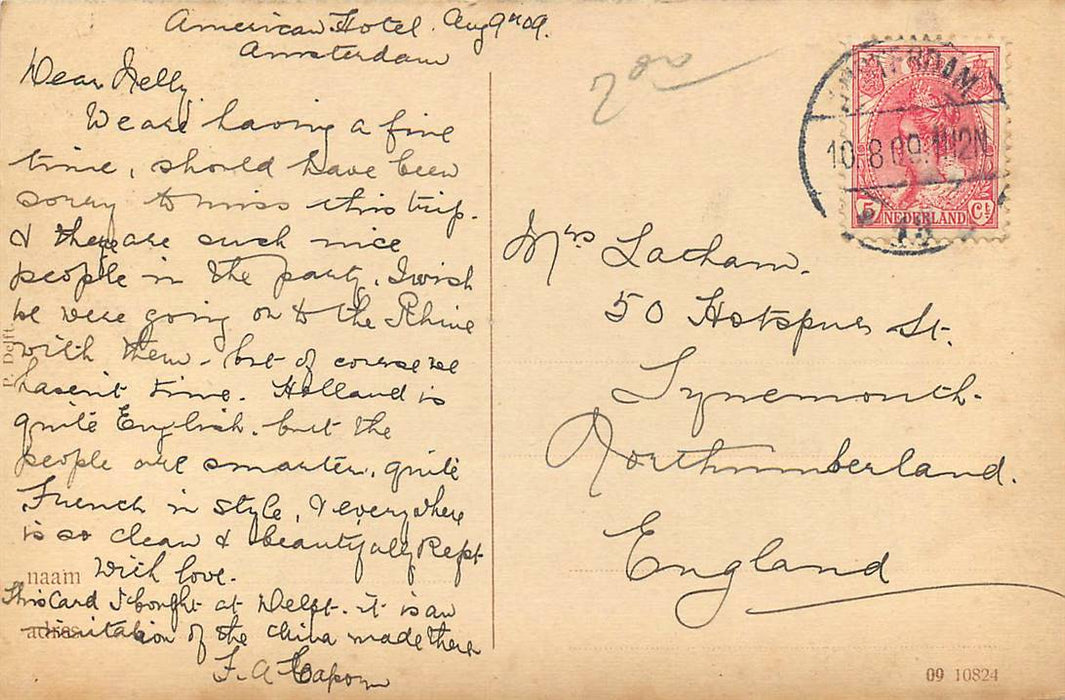 American Hotel. Aug 9th 09.
Amsterdam
Dear Nelly
We are having a fine
time, should have been
sorry to miss this trip.
& they are such nice
people in the party. I wish
we were going on to the Rhine
with them. but of course we
havent time. Holland is
quite English. but the
people are smarter, quite
French in style, & everywhere
is so clean & beautifully kept
With love.
This card I bought at Delft. it is an
imitation of the china made there
F. A.
naam
adres
P. Delft
200
AMSTERDAM
10. 8 09. 12N
5 NEDERLAND Ct
Mrs Latham.
50 Hotspur St.
Tynemouth.
Northumberland.
England
09 10824